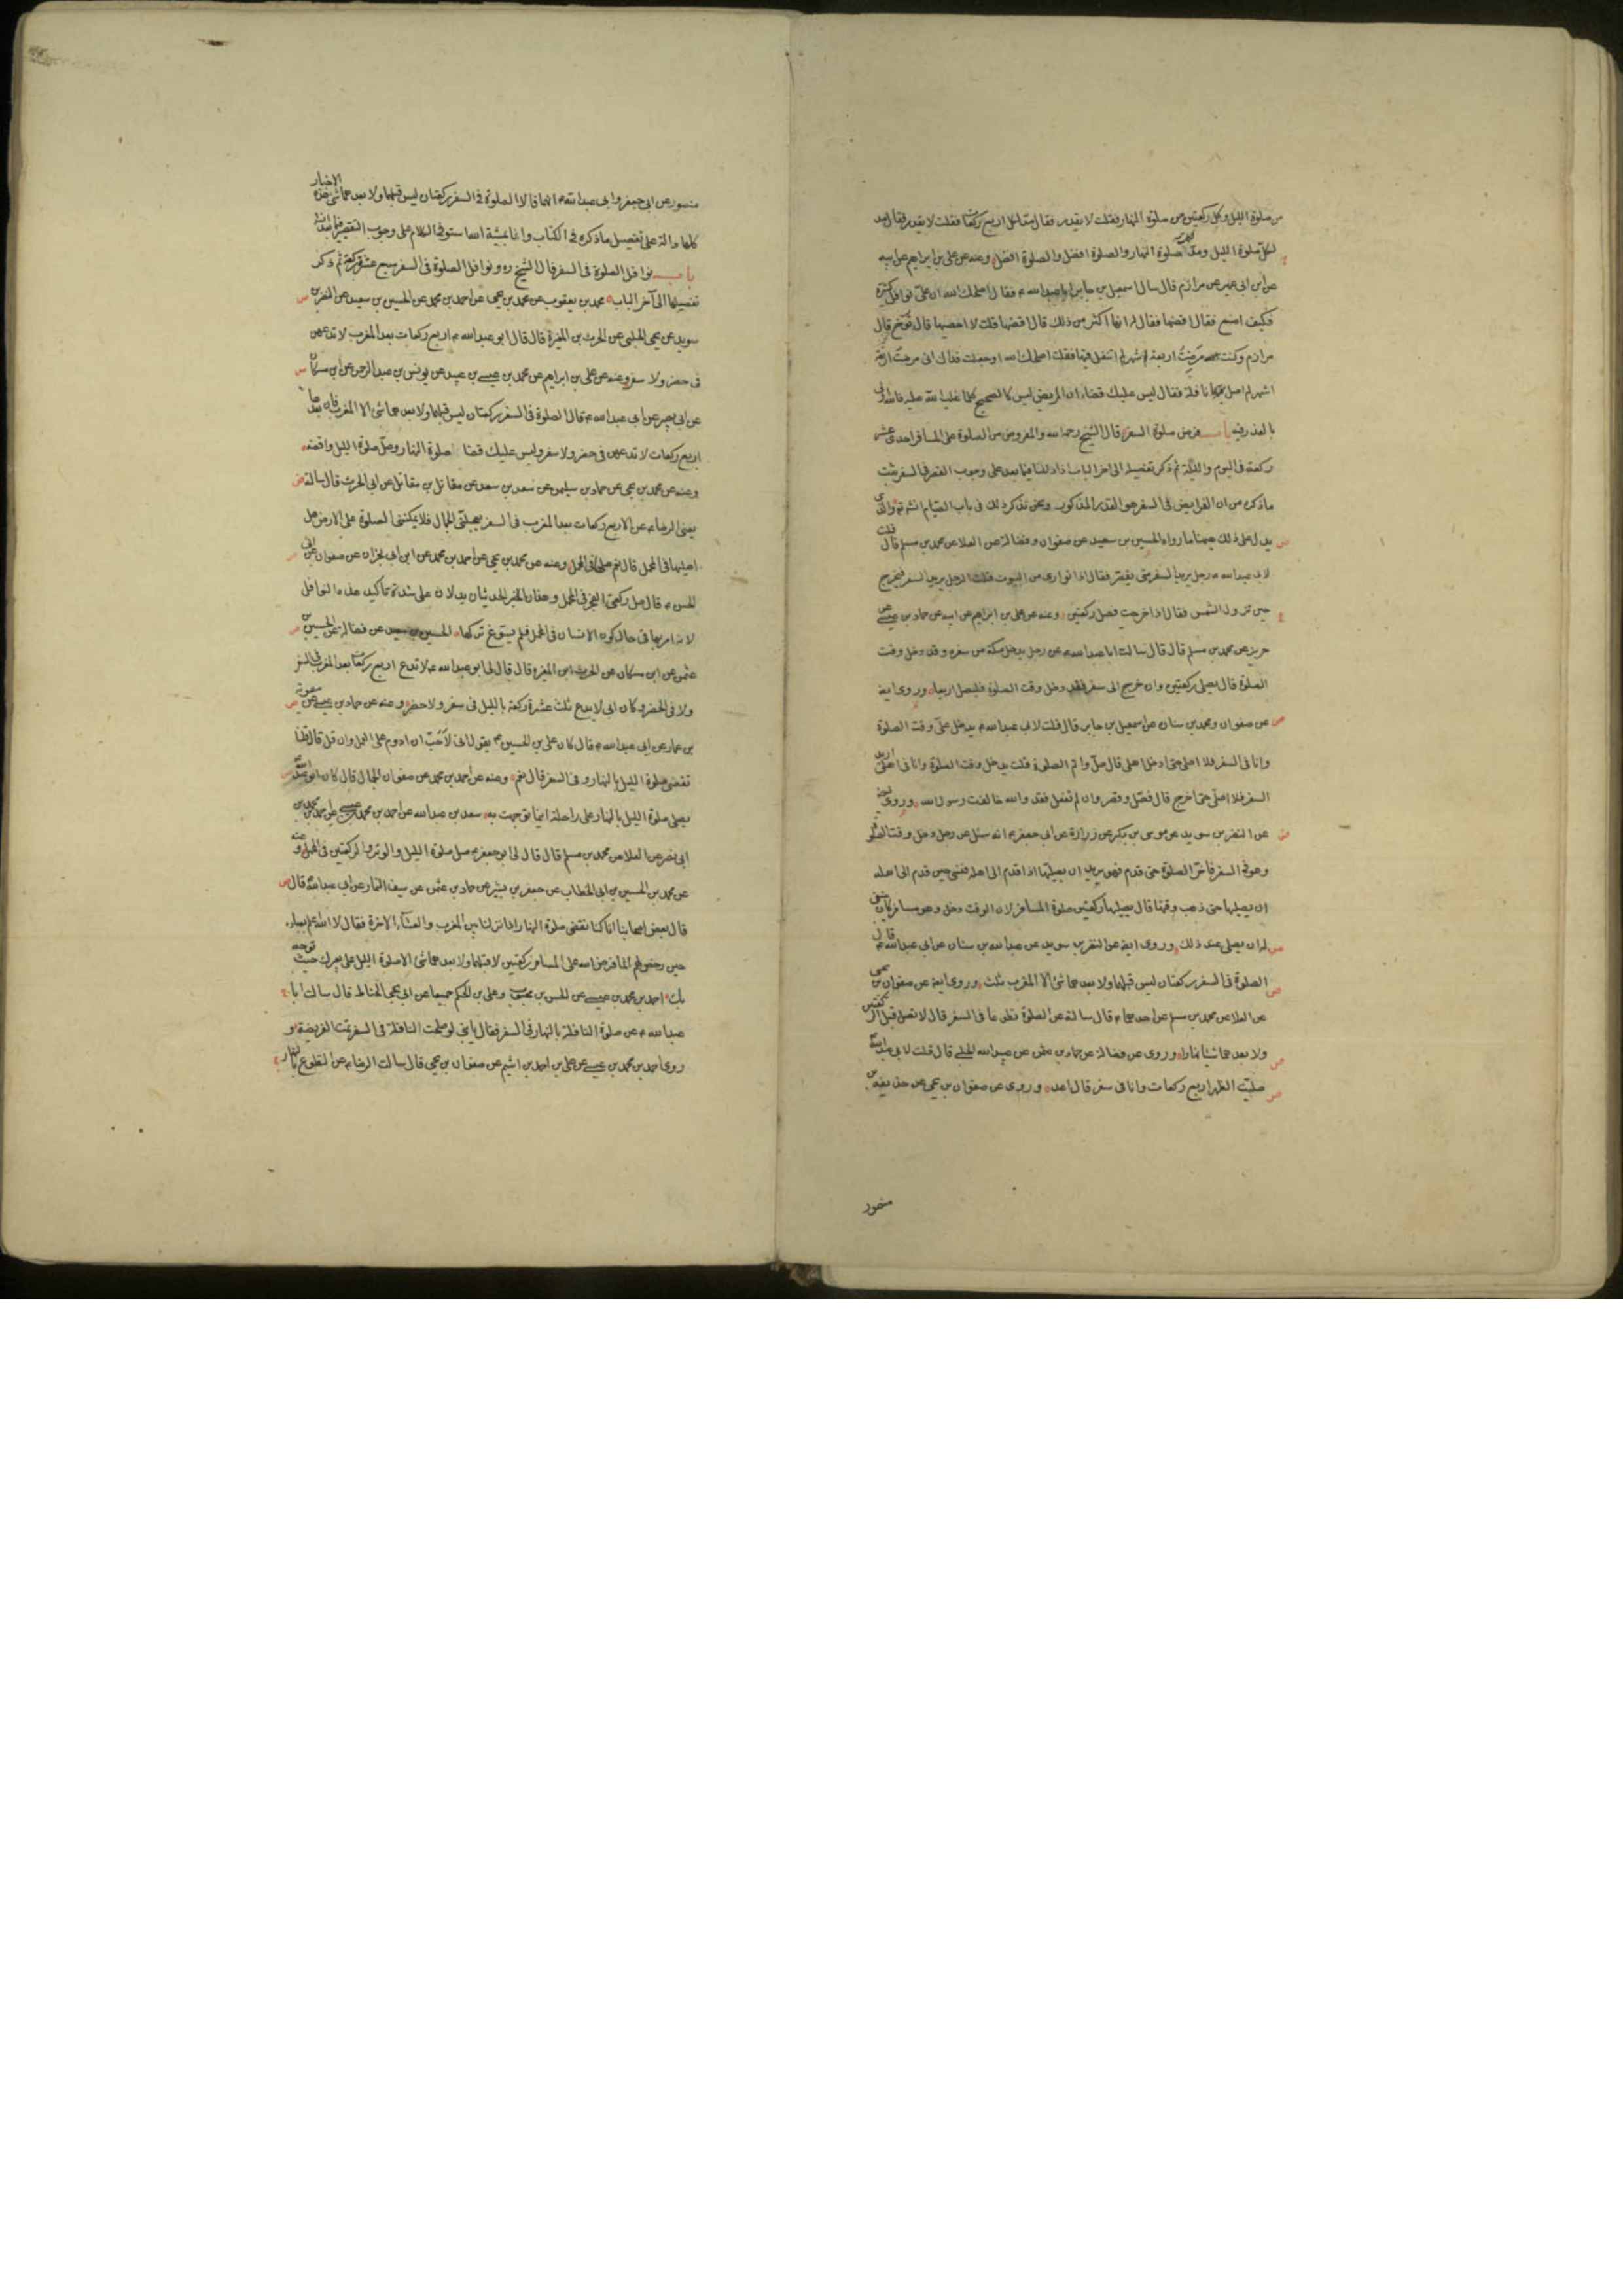 من صلوة الليل وكل ركعتين من صلوة النهار فقلت لا يقدر فقال مد لكل اربع ركعات فقلت لا يقدر فقال مد
لكل صلوة الليل ومد لصلوة النهار والصلوة افضل والصلوة افضل وعنه عن علي بن ابراهيم عن ابيه
عن ابن ابي عمير عن مرازم قال سال اسمعيل بن جابر ابا عبد الله ع فقال اصلحك الله ان علي نوافل كثيرة
فكيف اصنع فقال اقضها فقال له انها اكثر من ذلك قال اقضها قلت لا احصيها قال توخ قال
مرازم وكنت مرضت اربعة اشهر لم اتنفل فيها فقلت اصلحك الله او جعلت فداك اني مرضت اربعة
اشهر لم اصل فيها نافلة فقال ليس عليك قضاء ان المريض ليس كالصحيح كلما غلب الله عليه فالله اولى
بالعذر فيه باب فرض صلوة السفر قال الشيخ رحمه الله والمفروض من الصلوة على المسافر احدى عشر
ركعة في اليوم والليلة ثم ذكر تفصيله الى اخر الباب اذا دللنا فيما بعد على وجوب القصر في السفر ثبت
ماذكره من ان الفرايض في السفر هو القدر المذكور ونحن نذكر ذلك في باب الصيام انشاء الله تع والذي
يدل على ذلك هيهنا مارواه الحسين بن سعيد عن صفوان وفضالة عن العلا عن محمد بن مسلم قال قلت
لابي عبد الله ع رجل يريد السفر متى يقصر فقال اذا توارى من البيوت قلت الرجل يريد السفر فيخرج
حين تزول الشمس فقال اذا خرجت فصل ركعتين وعنه عن علي بن ابراهيم عن ابيه عن حماد بن عيسى عن
حريز عن محمد بن مسلم قال قال سالت ابا عبد الله ع عن رجل يدخل مكة من سفره وقد دخل وقت
الصلوة قال يصلي ركعتين وان خرج الى سفر وقد دخل وقت الصلوة فليصل اربعا وروى ايضا
عن صفوان ومحمد بن سنان عن اسمعيل بن جابر قال قلت لابي عبد الله ع يدخل علي وقت الصلوة
وانا في السفر فلا اصلي حتى ادخل اهلي قال صل واتم الصلوة قلت يدخل وقت الصلوة وانا في اهلي اريد
السفر فلا اصلي حتى اخرج قال فصل وقصر وان لم تفعل فقد والله خالفت رسول الله وروى ايضا
عن النضر بن سويد عن موسى بن بكر عن زرارة عن ابي جعفر ع انه سئل عن رجل دخل وقت الصلوة
وهو في السفر فاخر الصلوة حتى قدم فهو يريد ان يصليها اذا قدم الى اهله فنسي حين قدم الى اهله
ان يصليها حتى ذهب وقتها قال يصليها ركعتين صلوة المسافر لان الوقت دخل وهو مسافر كان ينبغي
له ان يصلي عند ذلك وروى ايضا عن النضر بن سويد عن عبد الله بن سنان عن ابي عبد الله ع قال
الصلوة في السفر ركعتان ليس قبلهما ولا بعدهما شئ الا المغرب ثلث وروى ايضا عن صفوان بن يحيى
عن العلا عن محمد بن مسلم عن احدهما ع قال سالته عن الصلوة تطوعا في السفر قال لا تصل قبل الركعتين
ولا بعدهما شيئا نهارا وروى عن فضالة عن حماد بن عثمن عن عبيد الله الحلبي قال قلت لابي عبد الله ع
صليت الظهر اربع ركعات وانا في سفر قال اعد وروى عن صفوان بن يحيى عن حذيفة بن
منصور
منصور عن ابي جعفر وابي عبد الله ع انهما قالا الصلوة في السفر ركعتان ليس قبلهما ولا بعدهما شئ هذه الاخبار
كلها دالة على تفصيل ماذكره في الكتاب وانا بمشية الله استوفي الكلام على وجوب التقصير فيما بعد انشاء
باب نوافل الصلوة في السفر قال الشيخ ره ونوافل الصلوة في السفر سبع عشرة ركعة ثم ذكر
تفصيلها الى آخر الباب محمد بن يعقوب عن محمد بن يحيى عن احمد بن محمد عن الحسين بن سعيد عن النضر بن
سويد عن يحيى الحلبي عن الحرث بن المغيرة قال قال ابو عبد الله ع اربع ركعات بعد المغرب لا تدعهن
في حضر ولا سفر وعنه عن علي بن ابراهيم عن محمد بن عيسى بن عبيد عن يونس بن عبد الرحمن عن ابن مسكان
عن ابي بصير عن ابي عبد الله ع قال الصلوة في السفر ركعتان ليس قبلهما ولا بعدهما شئ الا المغرب فان بعدها
اربع ركعات لا تدعهن في حضر ولا سفر وليس عليك قضاء صلوة النهار وصل صلوة الليل واقضه
وعنه عن محمد بن يحيى عن حماد بن سليمن عن سعد بن سعد عن مقاتل بن مقاتل عن ابي الحرث قال سالته
يعني الرضا ع عن الاربع ركعات بعد المغرب في السفر يعجلني الجمال فلا يمكنني الصلوة على الارض هل
اصليها في المحمل قال نعم صلها في المحمل وعنه عن محمد بن يحيى عن احمد بن محمد عن ابن ابي نجران عن صفوان عن ابي
الحسن ع قال صل ركعتي الفجر في المحمل وهذان الخبر الحديثان يدلان على شدة تاكيد هذه النوافل
لانه امر بها في حال كون الانسان في المحمل فلم يسوغ تركها الحسين بن سعيد عن فضالة عن الحسين بن
عثمن عن ابن مسكان عن الحرث ابن المغيرة قال قال لي ابو عبد الله ع لا تدع اربع ركعات بعد المغرب في السفر
ولا في الحضر وكان ابي لا يدع ثلث عشرة ركعة بالليل في سفر ولا حضر وعنه عن حماد بن عيسى عن معوية
بن عمار عن ابي عبد الله ع قال كان علي بن الحسين ع يقول اني لاحب ان ادوم على العمل وان قل قال قلنا
تقضي صلوة الليل بالنهار في السفر قال نعم وعنه عن احمد بن محمد عن صفوان الجمال قال كان ابو عبد الله ع
يصلي صلوة الليل بالنهار على راحلته اينما توجهت به سعد بن عبد الله عن احمد بن محمد بن عيسى عن احمد بن محمد بن
ابي نصر عن العلا عن محمد بن مسلم قال قال لي ابو جعفر ع صل صلوة الليل والوتر والركعتين في المحمل وعنه
عن محمد بن الحسين بن ابي الخطاب عن جعفر بن بشير عن حماد بن عثمن عن سيف التمار عن ابي عبد الله ع قال
قال بعض اصحابنا انا كنا نقضي صلوة النهار اذا نزلنا بين المغرب والعشاء الاخرة فقال لا الله اعلم بعباده
حين رخص لهم انما فرض الله على المسافر ركعتين لا قبلهما ولا بعدهما شئ الا صلوة الليل على بعيرك حيث توجه
بك احمد بن محمد بن عيسى عن الحسن بن محبوب وعلي بن الحكم جميعا عن ابي يحيى الحناط قال سالت ابا
عبد الله ع عن صلوة النافلة بالنهار في السفر فقال يا بني لو صلحت النافلة في السفر تمت الفريضة و
روى احمد بن محمد بن عيسى عن علي بن احمد بن اشيم عن صفوان بن يحيى قال سالت الرضا ع عن التطوع بالنهار